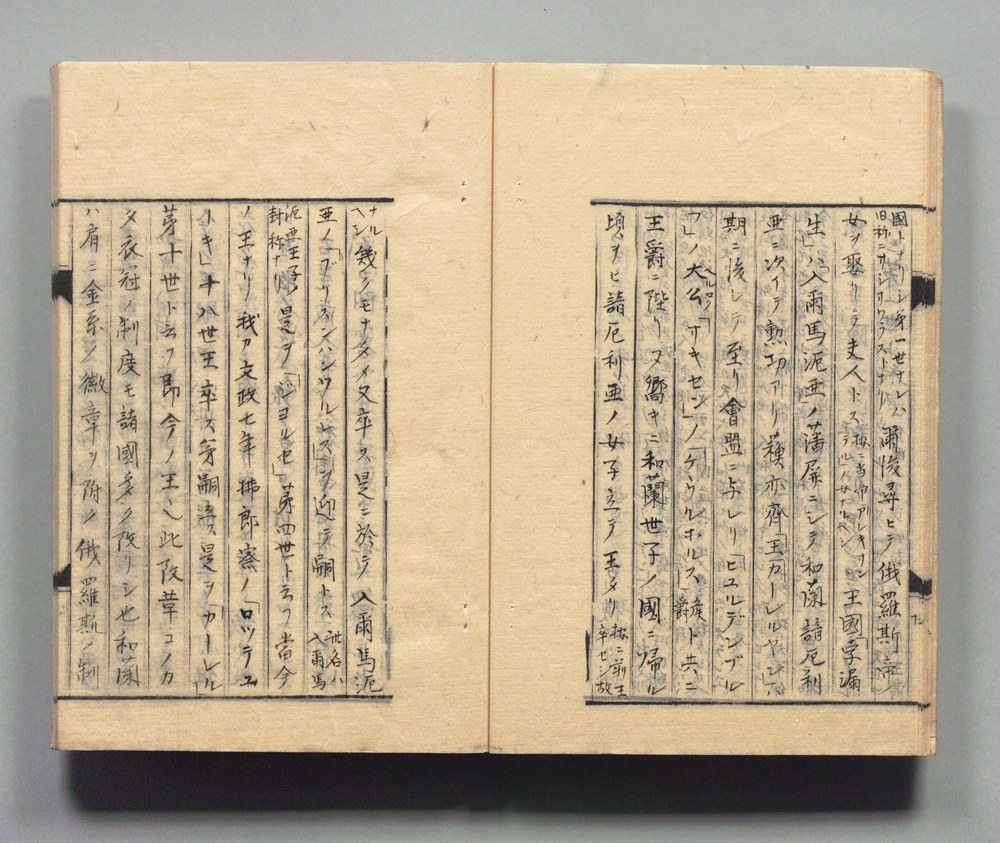 國トナリシ第一世ナレハ
旧称ニ
爾後尋ヒテ俄羅斯帝
女ヲ娶リテ夫人トス
王國孛漏
生ハ入爾馬泥亜ノ藩屏ニシテ和蘭諳厄利
亜ニ次イテ勲功アリ蘓亦齊王カーレルヤンハ
期ニ後レテ至リ會盟ニ与レリ「ヒユルデンブル
フ」ノ大公「サキセン」ノ「ケウルホルス」侯爵ト共ニ
王爵ニ陞リヌ嚮キニ和蘭世子ノ國ニ帰ル
頃ヲヒ諳厄利亜ノ女子立テ王タリ按ニ前王
卒セシ故
ナル
ヘシ
幾クモナク又卒ス是ニ於テ入爾馬泥
亜ノ
迎テ嗣トス
入爾馬
泥亜王子ノ
封称ナリ
是ヲ「ジヨルセ」第四世ト云フ當今
ノ王ナリ我カ文政七年拂郎察ノ「ロツテユ
十八世王卒ス弟嗣ク是ヲ「カーレル」
第十世ト云フ即今ノ王也此改革ヨノカ
タ衣冠ノ制度モ諸國多ク改リシ也和蘭
ハ肩ニ金系ノ徽章ヲ附ノ俄羅斯ノ制